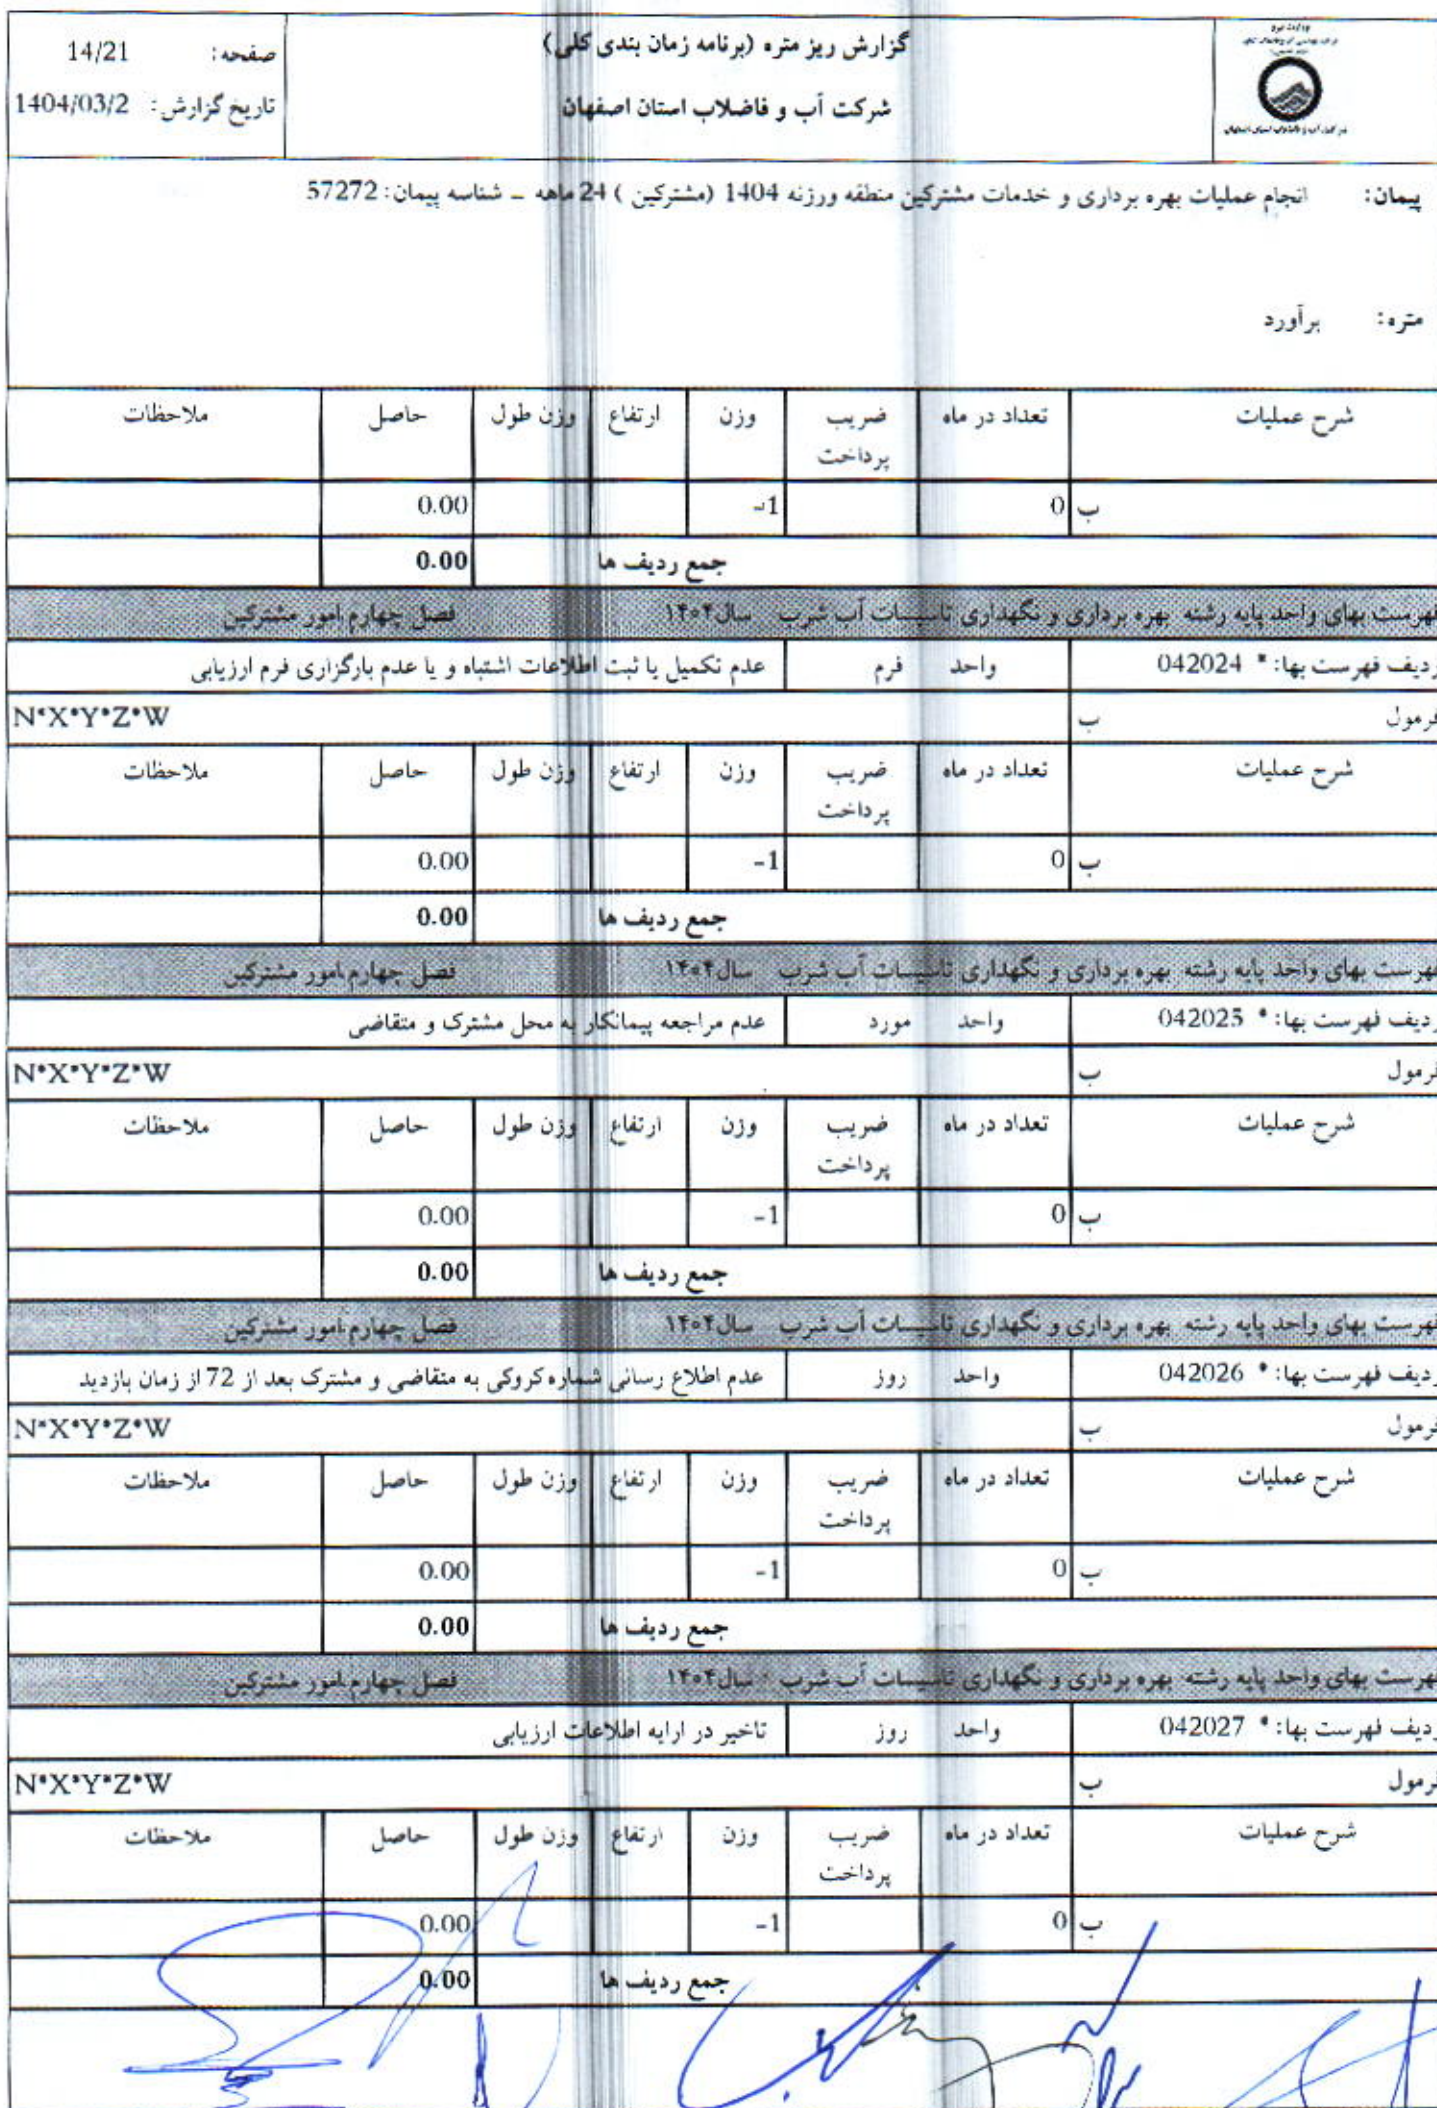 گزارش ریز متره (برنامه زمان بندی کلی)
شرکت آب و فاضلاب استان اصفهان
صفحه: 14/21
تاریخ گزارش: 1404/03/2
پیمان: انجام عملیات بهره برداری و خدمات مشترکین منطقه ورزنه 1404 (مشترکین ) 24 ماهه - شناسه پیمان: 57272
متره: برآورد
شرح عملیات تعداد در ماه ضریب پرداخت وزن ارتفاع وزن طول حاصل ملاحظات
ب 0 -1 0.00
جمع ردیف ها 0.00
فهرست بهای واحد پایه رشته بهره برداری و نگهداری تاسیسات آب شرب سال۱۴۰۴ فصل چهارم.امور مشترکین
ردیف فهرست بها: * 042024 واحد فرم عدم تکمیل یا ثبت اطلاعات اشتباه و یا عدم بارگزاری فرم ارزیابی
فرمول ب N*X*Y*Z*W
شرح عملیات تعداد در ماه ضریب پرداخت وزن ارتفاع وزن طول حاصل ملاحظات
ب 0 -1 0.00
جمع ردیف ها 0.00
فهرست بهای واحد پایه رشته بهره برداری و نگهداری تاسیسات آب شرب سال۱۴۰۴ فصل چهارم.امور مشترکین
ردیف فهرست بها: * 042025 واحد مورد عدم مراجعه پیمانکار به محل مشترک و متقاضی
فرمول ب N*X*Y*Z*W
شرح عملیات تعداد در ماه ضریب پرداخت وزن ارتفاع وزن طول حاصل ملاحظات
ب 0 -1 0.00
جمع ردیف ها 0.00
فهرست بهای واحد پایه رشته بهره برداری و نگهداری تاسیسات آب شرب سال۱۴۰۴ فصل چهارم.امور مشترکین
ردیف فهرست بها: * 042026 واحد روز عدم اطلاع رسانی شماره کروکی به متقاضی و مشترک بعد از 72 از زمان بازدید
فرمول ب N*X*Y*Z*W
شرح عملیات تعداد در ماه ضریب پرداخت وزن ارتفاع وزن طول حاصل ملاحظات
ب 0 -1 0.00
جمع ردیف ها 0.00
فهرست بهای واحد پایه رشته بهره برداری و نگهداری تاسیسات آب شرب سال۱۴۰۴ فصل چهارم.امور مشترکین
ردیف فهرست بها: * 042027 واحد روز تاخیر در ارایه اطلاعات ارزیابی
فرمول ب N*X*Y*Z*W
شرح عملیات تعداد در ماه ضریب پرداخت وزن ارتفاع وزن طول حاصل ملاحظات
ب 0 -1 0.00
جمع ردیف ها 0.00